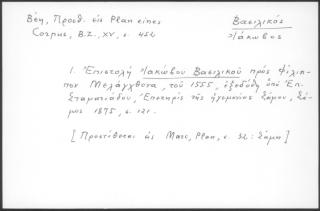 Βέη, Προσθ. εἰς Plan eines
Corpus, B.Z., XV, σ. 482
Βασιλικός
Ἰάκωβος
1. Ἐπιστολή Ἰακώβου Βασιλικοῦ πρός Φίλιπ-
πον Μελάγχθονα, τοῦ 1555, ἐξεδόθη ὑπό Ἐπ.
Σταματιάδου, Ἐπετηρίς τῆς ἡγεμονίας Σάμου, Σά-
μος 1875, σ. 121.
[Προστίθεται εἰς Marc, Plan, σ. 92: Σάμος]